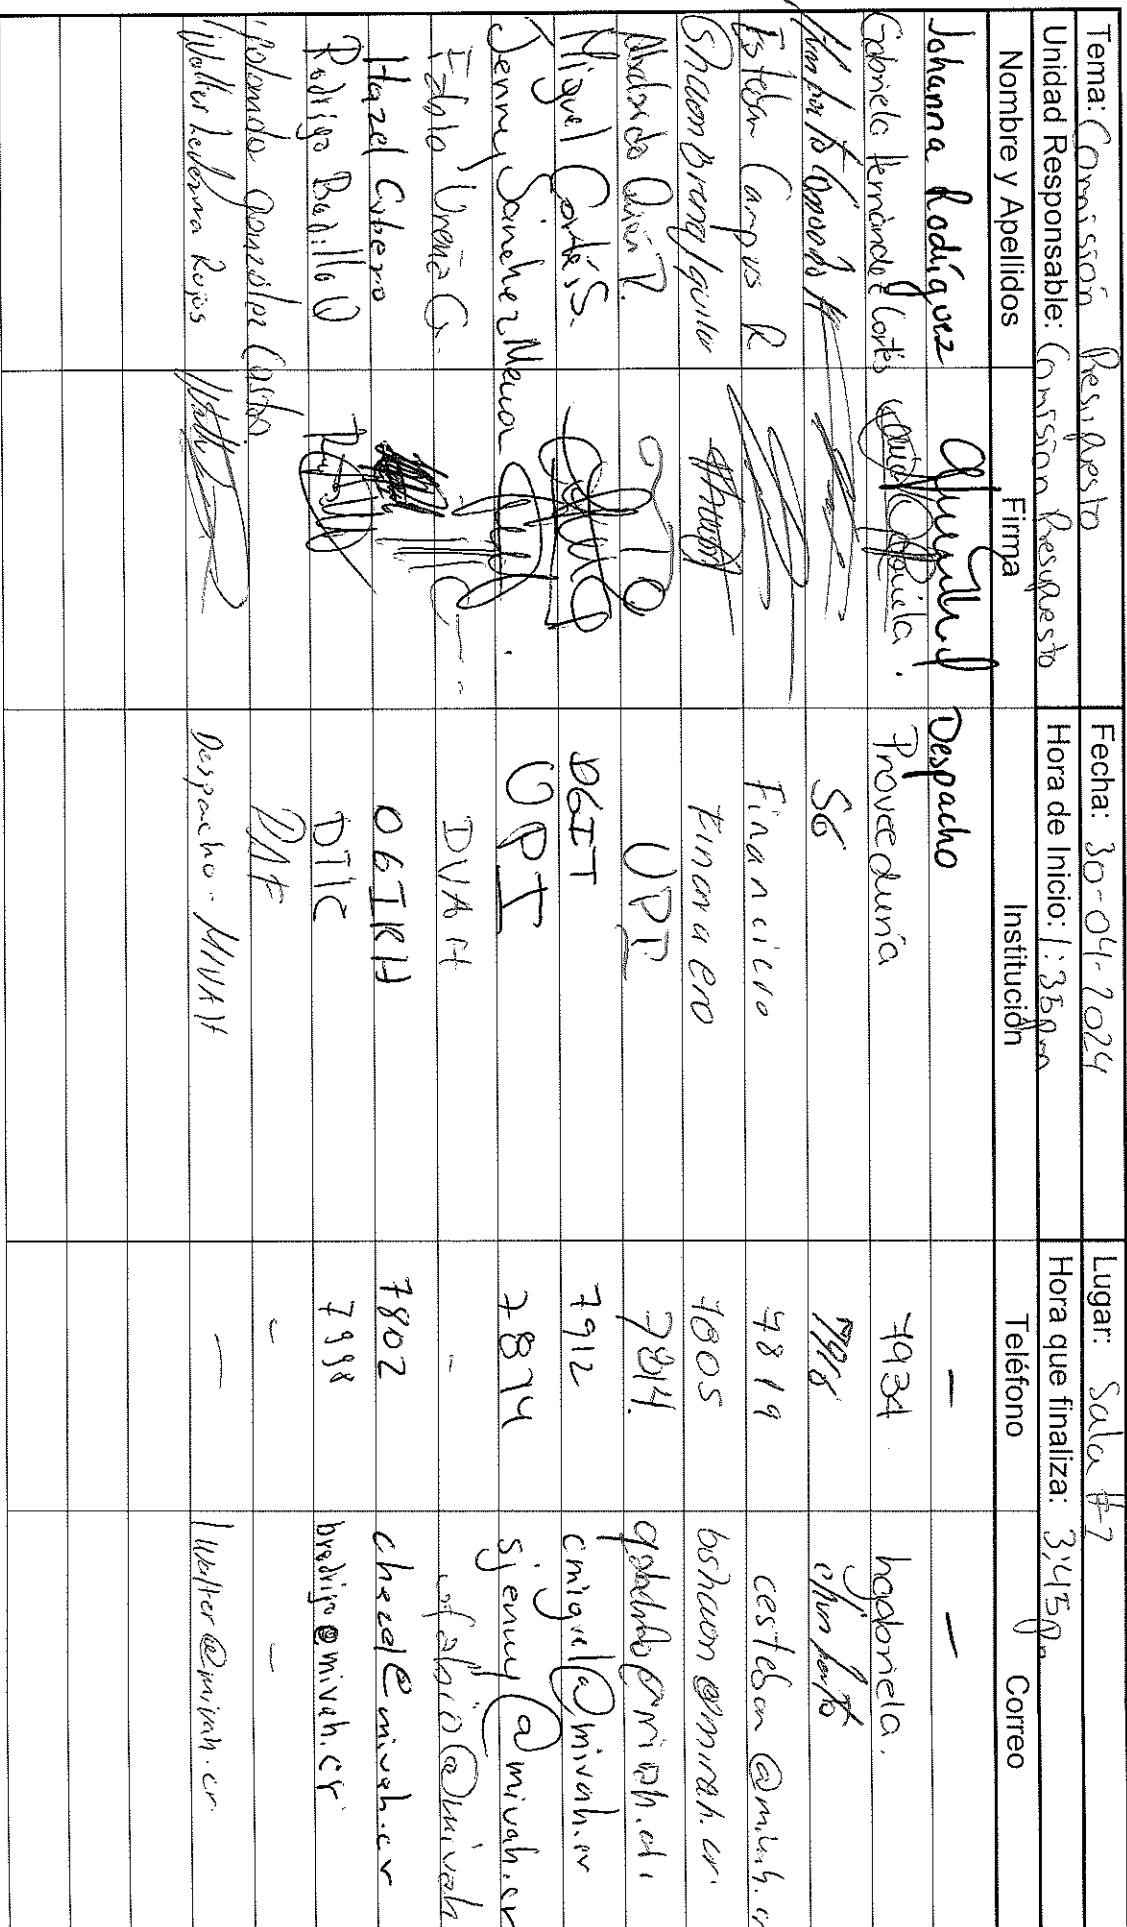 Tema: Comisión Presupuesto Fecha: 30-04-2024 Lugar: Sala #7
Unidad Responsable: Comisión Presupuesto Hora de Inicio: 1:35pm Hora que finaliza: 3:45pm
Nombre y Apellidos Firma Institución Teléfono Correo
Johanna Rodíguez Despacho — —
Gabriela Hernández Cortés Proveeduría 7934 hgabriela.
SG
Esteban Campus R Financiero 7819 cesteban@mivah.cr
Shaon Brenes Aguilar Financiero 7805 bshaon@mivah.cr.
UPI 7814.
Miguel Cortés S. DGIT 7912 cmiguel@mivah.cr
Jenny Sánchez Mena UPI 7874 sjenny@mivah.cr
Fabio Ureña G. DVAH - ufabio@mivah
Hazel Cubero OGIRH 7802 chazel@mivah.cr
Rodrigo Badilla O DTIC 7998 brodrigo@mivah.cr
Yolanda González Castro DAF - -
Walter Ledezma Rojas Despacho - MIVAH — lwalter@mivah.cr